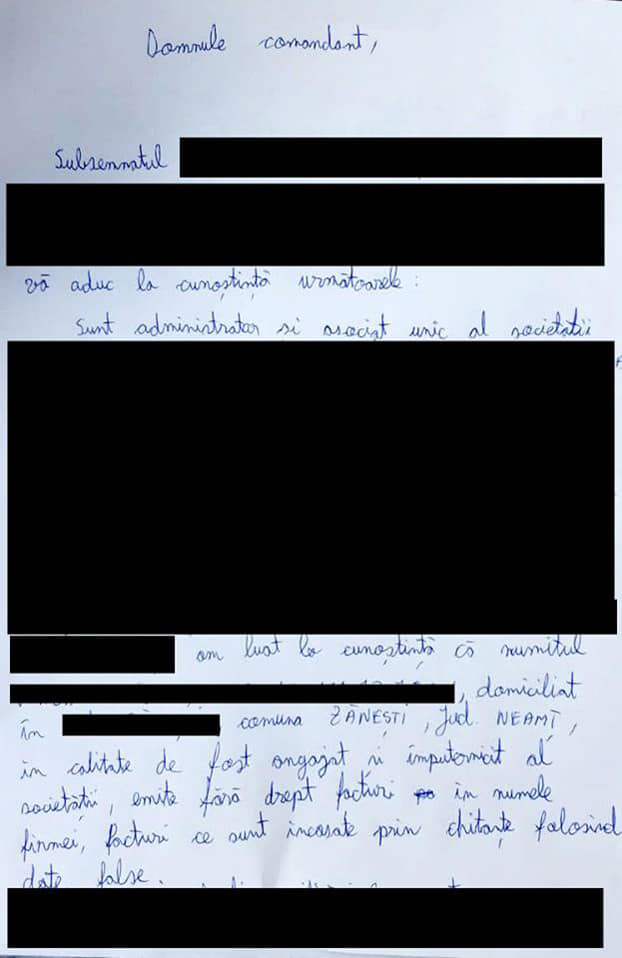 Domnule comandant,
Subsemnatul
vă aduc la cunoștință următoarele:
Sunt administrator si asociat unic al societatii
am luat la cunoștință că numitul
, domiciliat
în comuna ZĂNEȘTI, Jud. NEAMȚ,
în calitate de fost angajat și împuternicit al
societății, emite fără drept facturi în numele
firmei, facturi ce sunt incasate prin chitanțe folosind
date false.